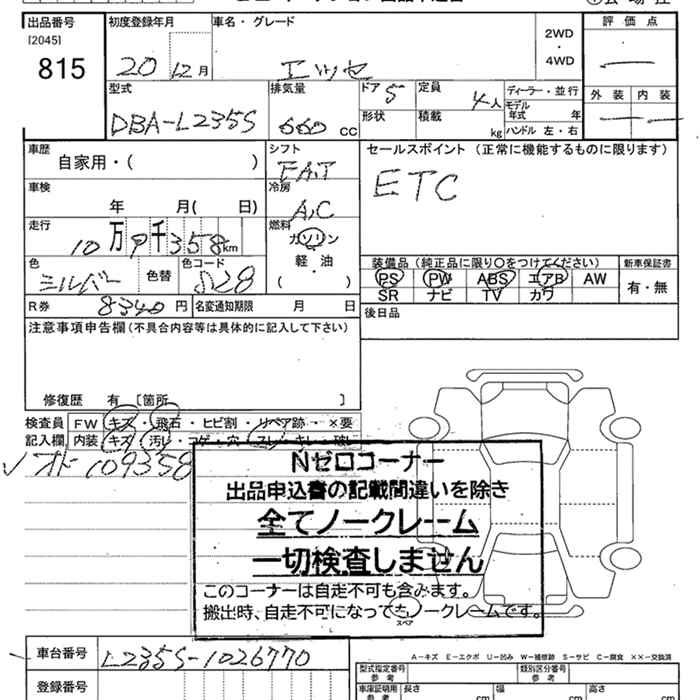 出品番号 初度登録年月 車名・グレード 評価点
[2045]
815 20 12月 エッセ 2WD・4WD
型式 排気量 ドア 5 定員 4人 ディーラー・並行 外装 内装
DBA-L235S 660 CC 形状 積載 kg モデル年式 年
ハンドル 左・右
車歴 シフト セールスポイント (正常に機能するものに限ります)
自家用・( ) FAT ETC
車検 冷房
年 月( 日) A,C
走行 燃料
10万9千358km ガソリン
軽・油
( )
色 色替 色コード 装備品(純正品に限り○をつけてください) 新車保証書
シルバー S28 PS PW ABS エアB AW 有・無
SR ナビ TV カワ
R券 8340円 名変通知期限 月 日 後日品
注意事項申告欄(不具合内容等は具体的に記入して下さい)
修復歴 有 [箇所 ]
検査員 FW キズ・飛石・ヒビ割・リペア跡・×要
記入欄 内装 キズ・汚レ・コゲ・穴・スレ・キレ・破レ
✓オド109358
Nゼロコーナー
出品申込書の記載間違いを除き
全てノークレーム
一切検査しません
このコーナーは自走不可も含みます。
搬出時、自走不可になってもノークレームです。
スペア
A-キズ E-エクボ U-凹み W-補修跡 S-サビ C-腐食 ××-交換済
車台番号 L235S-1026770 型式指定番号 参考 類別区分番号 参考
登録番号 車庫証明用 参考 長さ cm 幅 cm 高さ cm